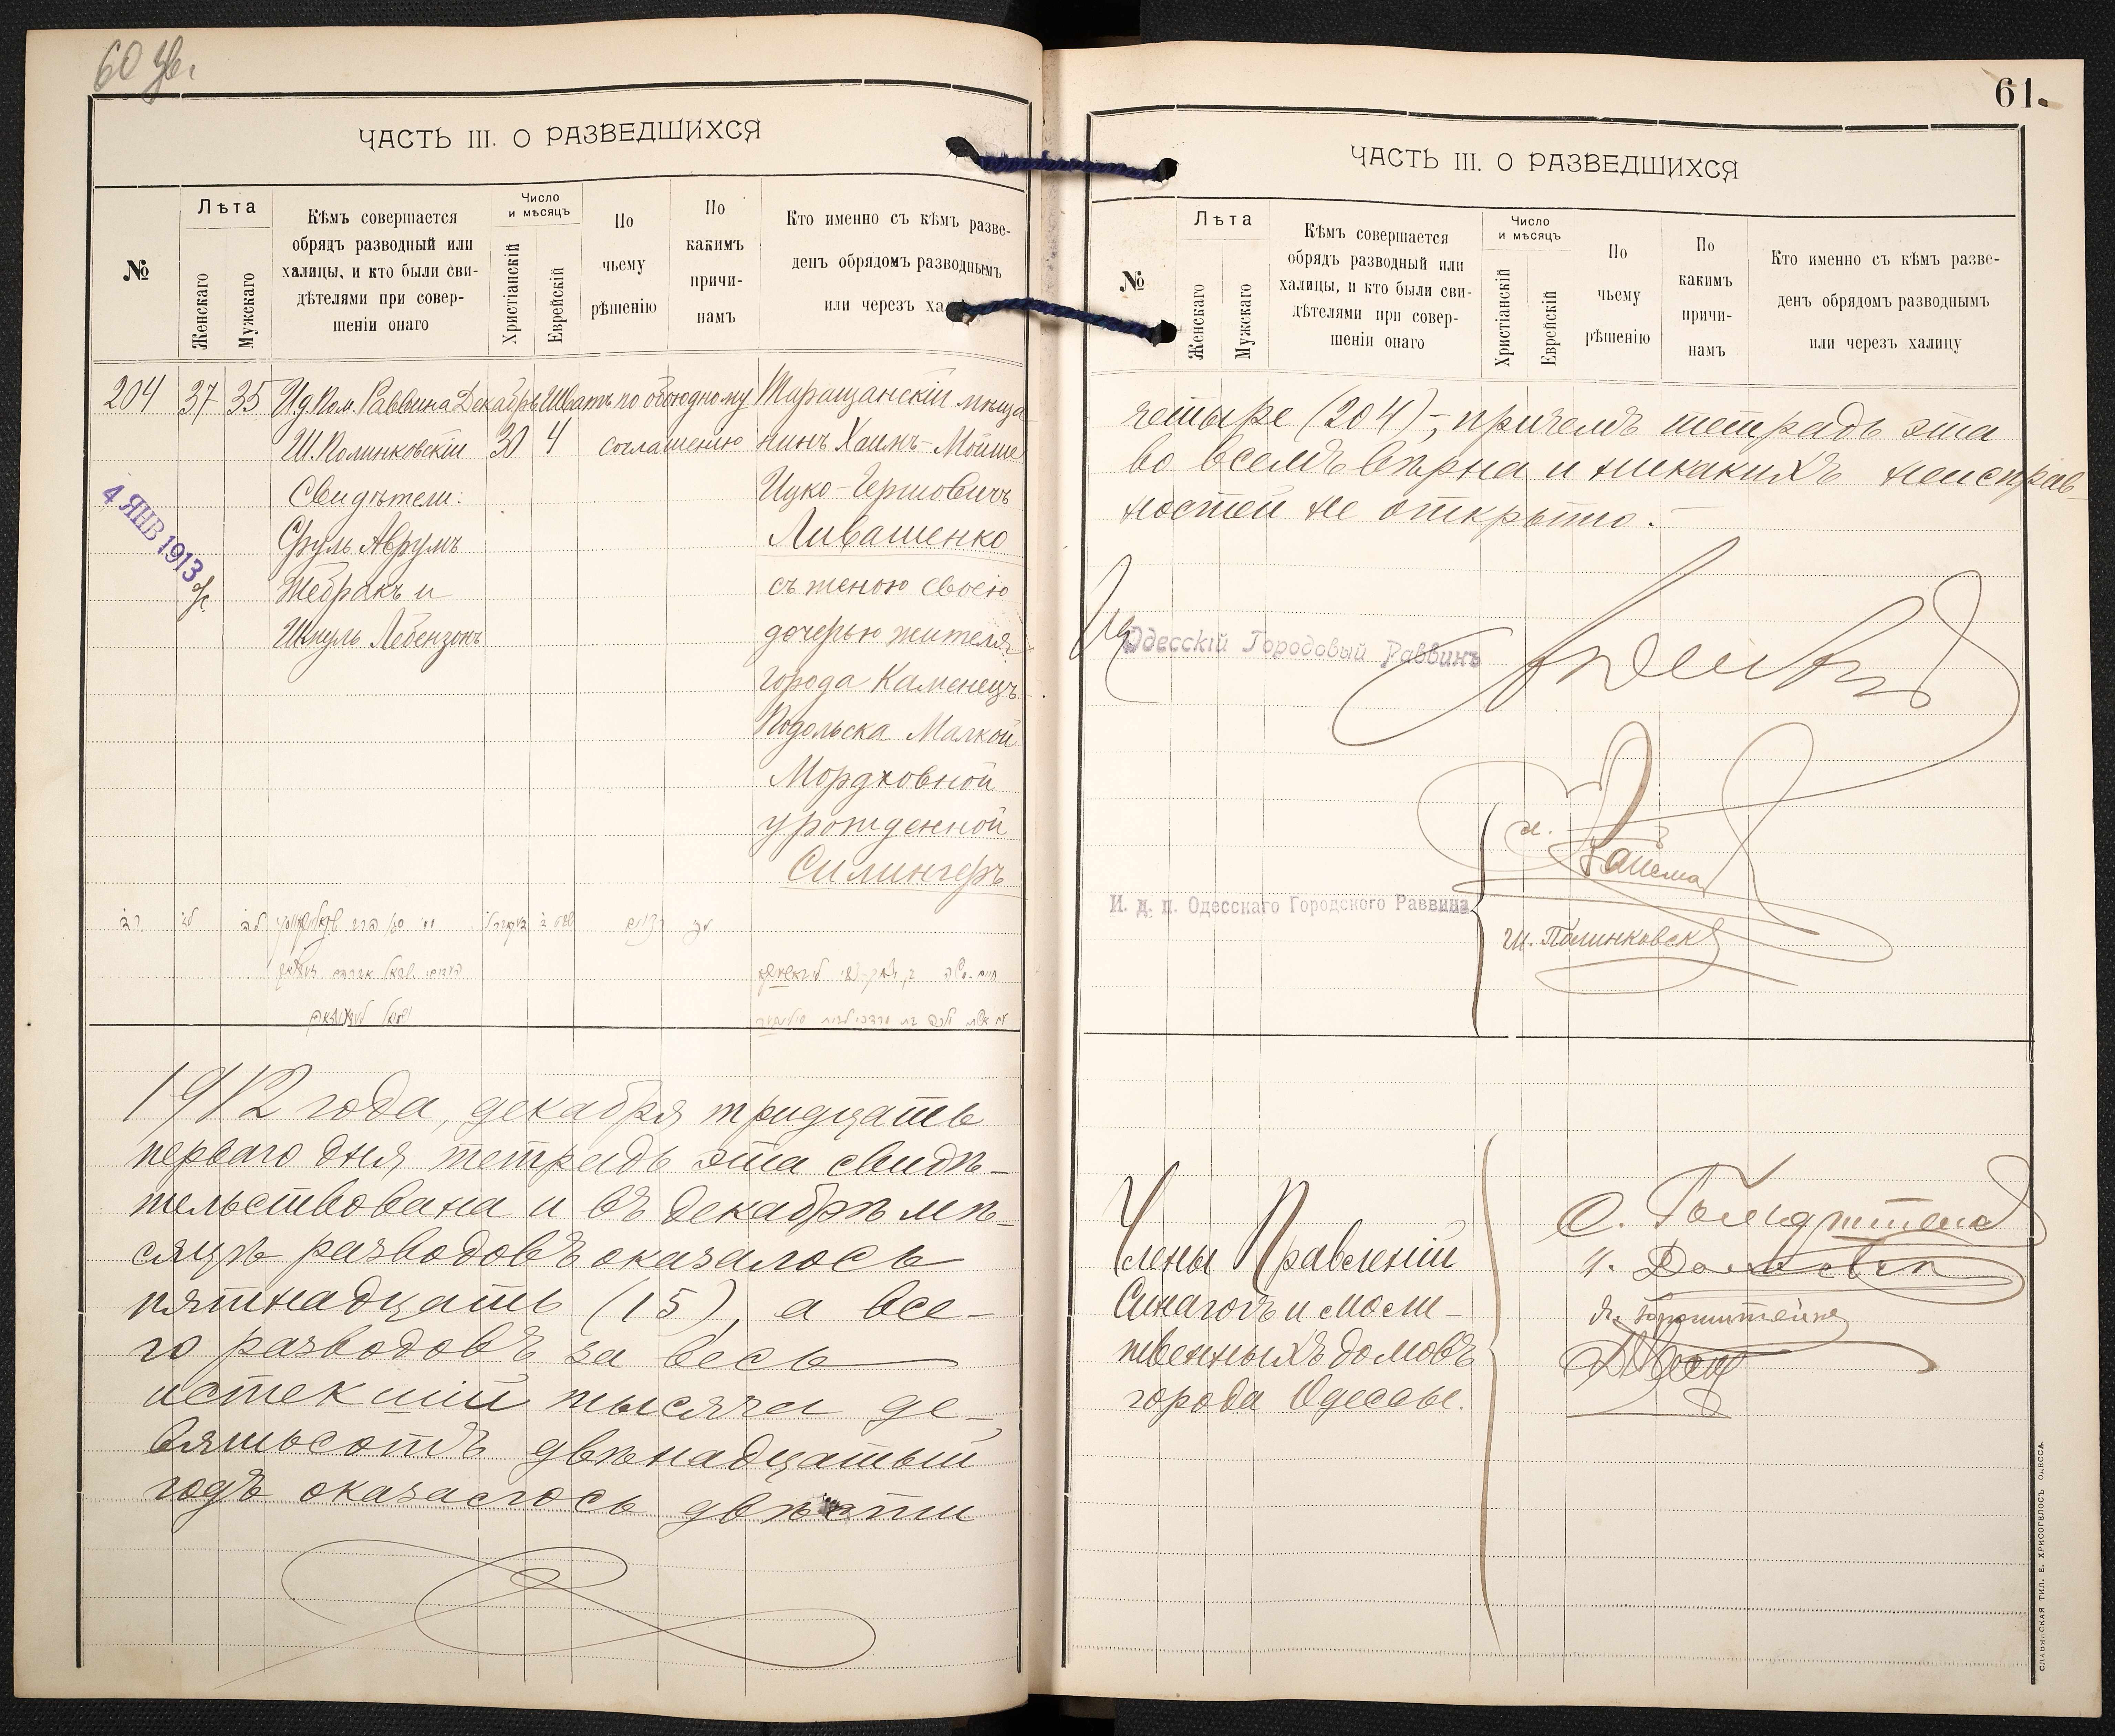 ЧАСТЬ III. О РАЗВЕДШИХСЯ
№
Лѣта
Женскаго
Мужскаго
Кѣмъ совершается
обрядъ разводный или
халицы, и кто были сви-
дѣтелями при совер-
шеніи онаго
Число
и мѣсяцъ
Христіанскій
Еврейскій
По
чьему
рѣшенію
По
какимъ
причи-
намъ
Кто именно съ кѣмъ разве-
денъ обрядомъ разводнымъ
или черезъ ха
204 37 35 И.д. Пом. Раввина Декабрь Шватъ по обоюдному Таращанскій мѣща
Ш. Полинковскій 30 4 соглашенію нинъ Хаимъ-Мойше
Свидѣтели: Ицко-Гершовичъ
Сруль Аврумъ Ливашенко
4 ЯНВ 1913
Жебракъ и съ женою своею
Шмуль Лебензонъ дочерью жителя
города Каменецъ
Подольска Малкой
Мордховной
урожденной
Силингеръ
1912 года, декабря тридцать
перваго дня тетрадь эта свидѣ-
тельствована и въ декабрѣ мѣ-
сяцѣ разводовъ оказалось
пятнадцать (15), а все-
го разводовъ за весь
истекшій тысяча де-
вятьсотъ двѣнадцатый
годъ оказалось двѣсти
61.
ЧАСТЬ III. О РАЗВЕДШИХСЯ
№
Лѣта
Женскаго
Мужскаго
Кѣмъ совершается
обрядъ разводный или
халицы, и кто были сви-
дѣтелями при совер-
шеніи онаго
Число
и мѣсяцъ
Христіанскій
Еврейскій
По
чьему
рѣшенію
По
какимъ
причи-
намъ
Кто именно съ кѣмъ разве-
денъ обрядомъ разводнымъ
или черезъ халицу
четыре (204)-, причемъ тетрадь эта
во всемъ вѣрна и никакихъ неисправ-
ностей не открыто.-
Одесскій Городовый Раввинъ
И. д. п. Одесскаго Городского Раввина
Ш. Полинковск
Члены Правленій
Синагогъ и моли-
твенныхъ домовъ
города Одессы.
СЛАВЯНСКАЯ ТИП. Е. ХРИСОГЕЛОСЪ ОДЕССА